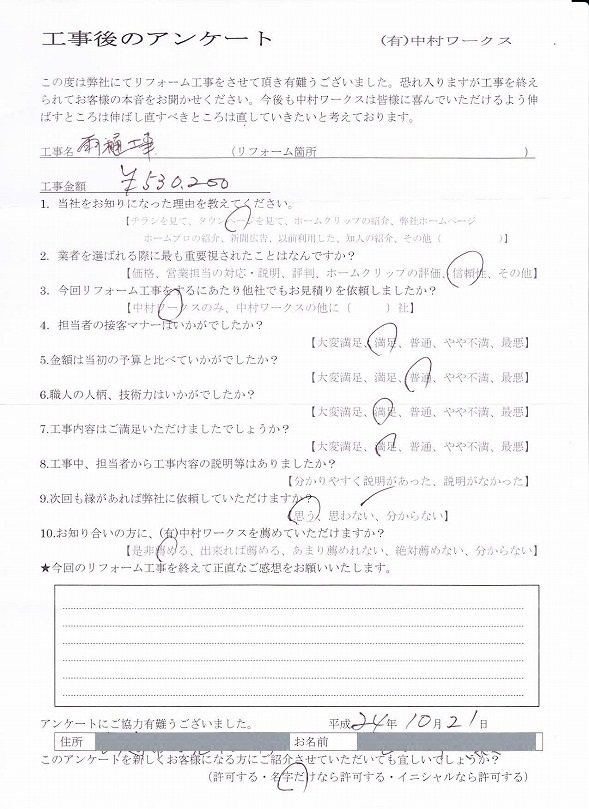 工事後のアンケート (有)中村ワークス
この度は弊社にてリフォーム工事をさせて頂き有難うございました。恐れ入りますが工事を終え
られてお客様の本音をお聞かせください。今後も中村ワークスは皆様に喜んでいただけるよう伸
ばすところは伸ばし直すべきところは直していきたいと考えております。
工事名 雨樋工事 (リフォーム箇所 )
工事金額 ¥530.200
1. 当社をお知りになった理由を教えてください。
【チラシを見て、タウンページを見て、ホームクリップの紹介、弊社ホームページ
ホームプロの紹介、新聞広告、以前利用した、知人の紹介、その他（ )】
2. 業者を選ばれる際に最も重要視されたことはなんですか？
【価格、営業担当の対応・説明、評判、ホームクリップの評価、信頼性、その他】
3. 今回リフォーム工事をするにあたり他社でもお見積りを依頼しましたか？
【中村ワークスのみ、中村ワークスの他に（ ）社】
4. 担当者の接客マナーはいかがでしたか？
【大変満足、満足、普通、やや不満、最悪】
5.金額は当初の予算と比べていかがでしたか？
【大変満足、満足、普通、やや不満、最悪】
6.職人の人柄、技術力はいかがでしたか？
【大変満足、満足、普通、やや不満、最悪】
7.工事内容はご満足いただけましたでしょうか？
【大変満足、満足、普通、やや不満、最悪】
8.工事中、担当者から工事内容の説明等はありましたか？
【分かりやすく説明があった、説明がなかった】
9.次回も縁があれば弊社に依頼していただけますか？
【思う、思わない、分からない】
10.お知り合いの方に、(有)中村ワークスを薦めていただけますか？
【是非薦める、出来れば薦める、あまり薦めれない、絶対薦めない、分からない】
★今回のリフォーム工事を終えて正直なご感想をお願いいたします。
アンケートにご協力有難うございました。 平成24年10月21日
住所 お名前
このアンケートを新しくお客様になる方にご紹介させていただいても宜しいでしょうか？
(許可する・名字だけなら許可する・イニシャルなら許可する)